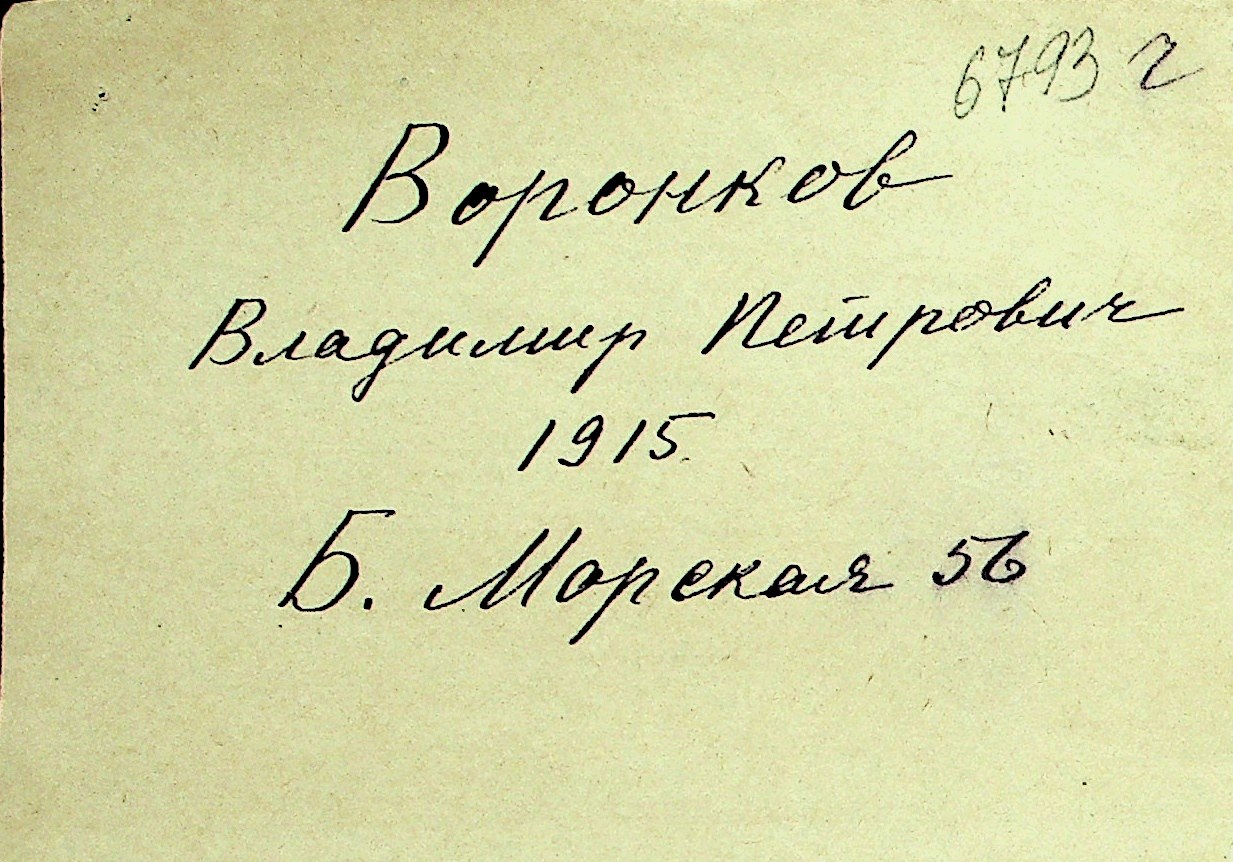 6793 г
Воронков
Владимир Петрович
1915
Б. Морская 56